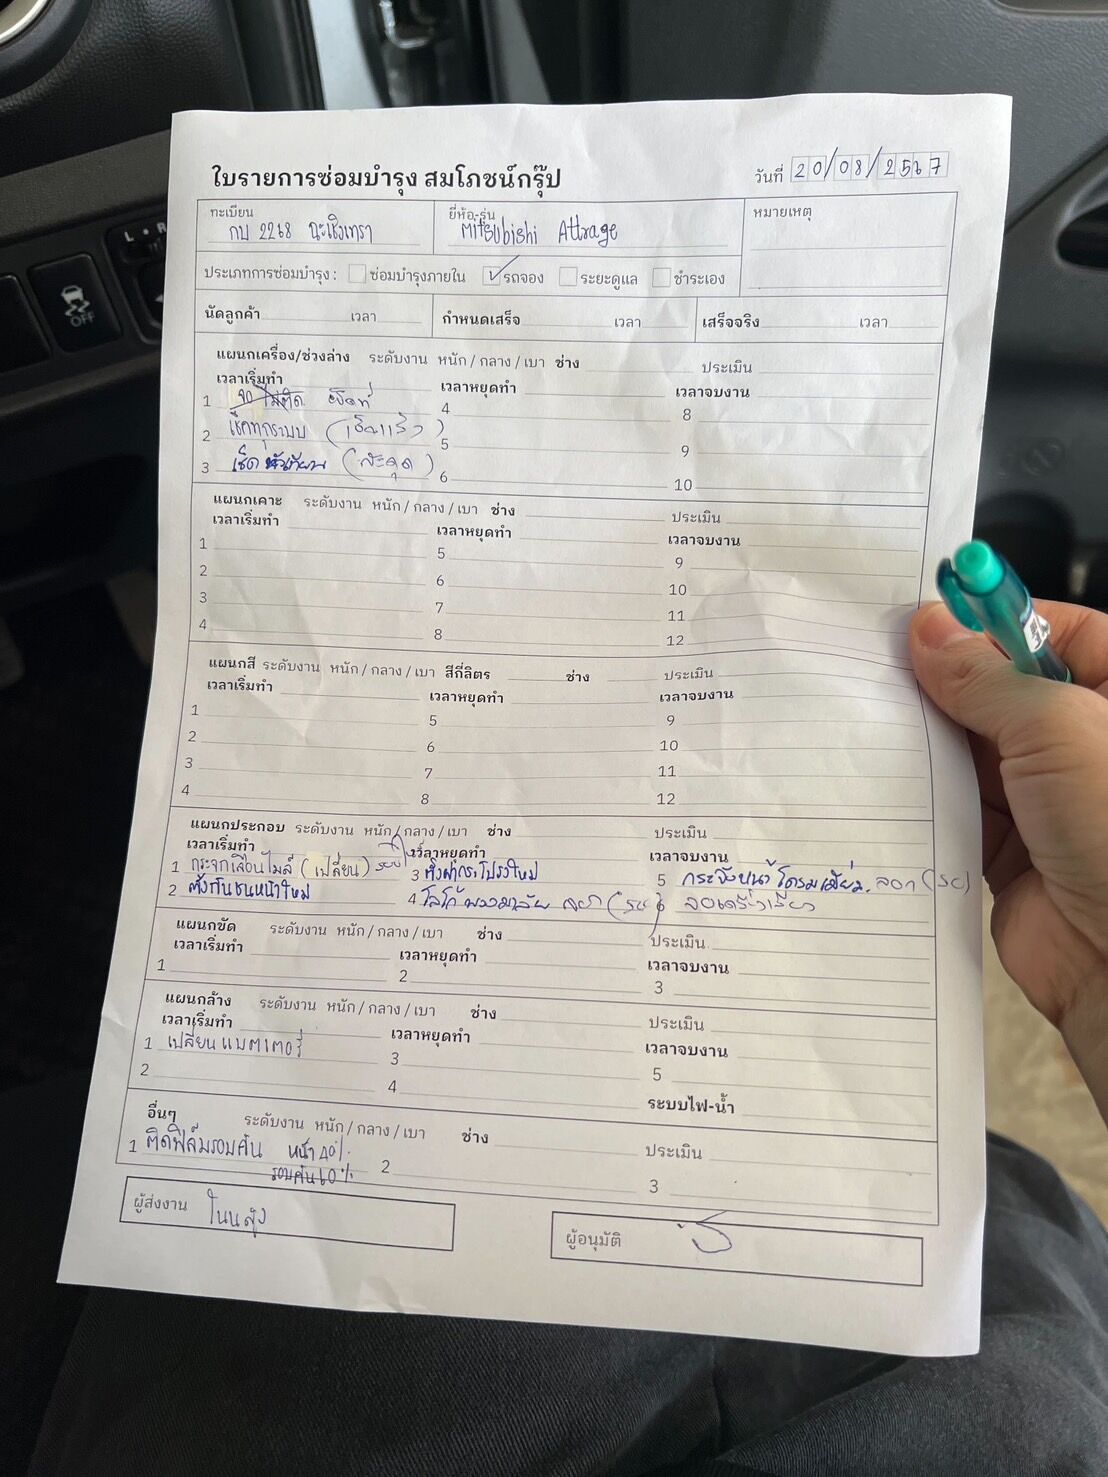 ใบรายการซ่อมบำรุง สมโภชน์กรุ๊ป
วันที่ 20/08/2567
ทะเบียน
กบ 2268 ฉะเชิงเทรา
ยี่ห้อ-รุ่น
Mitsubishi Attrage
หมายเหตุ
ประเภทการซ่อมบำรุง : ซ่อมบำรุงภายใน รถจอง ระยะดูแล ชำระเอง
นัดลูกค้า เวลา กำหนดเสร็จ เวลา เสร็จจริง เวลา
แผนกเครื่อง/ช่วงล่าง ระดับงาน หนัก / กลาง / เบา ช่าง ประเมิน
เวลาเริ่มทำ เวลาหยุดทำ เวลาจบงาน
1 4 8
2 เช็คทุกระบบ 5 9
3 เช็ค หัวเทียน (สะดุด) 6 10
แผนกเคาะ ระดับงาน หนัก / กลาง / เบา ช่าง ประเมิน
เวลาเริ่มทำ เวลาหยุดทำ เวลาจบงาน
1 5 9
2 6 10
3 7 11
4 8 12
แผนกสี ระดับงาน หนัก / กลาง / เบา สีกี่ลิตร ช่าง ประเมิน
เวลาเริ่มทำ เวลาหยุดทำ เวลาจบงาน
1 5 9
2 6 10
3 7 11
4 8 12
แผนกประกอบ ระดับงาน หนัก / กลาง / เบา ช่าง ประเมิน
เวลาเริ่มทำ เวลาหยุดทำ เวลาจบงาน
1 กระจกเลื่อนไมล์ (เปลี่ยน) 3 ตั้งฝากระโปรงใหม่ 5 กระจังหน้าโครเมี่ยม ลอก (รอ)
2 ตั้งกันชนหน้าใหม่ 4 โลโก้ พวงมาลัย ลอก (รอ) 6
แผนกขัด ระดับงาน หนัก / กลาง / เบา ช่าง ประเมิน
เวลาเริ่มทำ เวลาหยุดทำ เวลาจบงาน
1 2 3
แผนกล้าง ระดับงาน หนัก / กลาง / เบา ช่าง ประเมิน
เวลาเริ่มทำ เวลาหยุดทำ เวลาจบงาน
1 เปลี่ยนแบตเตอรี่ 3 5
2 4 ระบบไฟ-น้ำ
อื่นๆ ระดับงาน หนัก / กลาง / เบา ช่าง ประเมิน
1 ติดฟิล์มรอบคัน หน้า 40% 2 3
รอบคัน 60%
ผู้ส่งงาน
ผู้อนุมัติ
OFF
L R